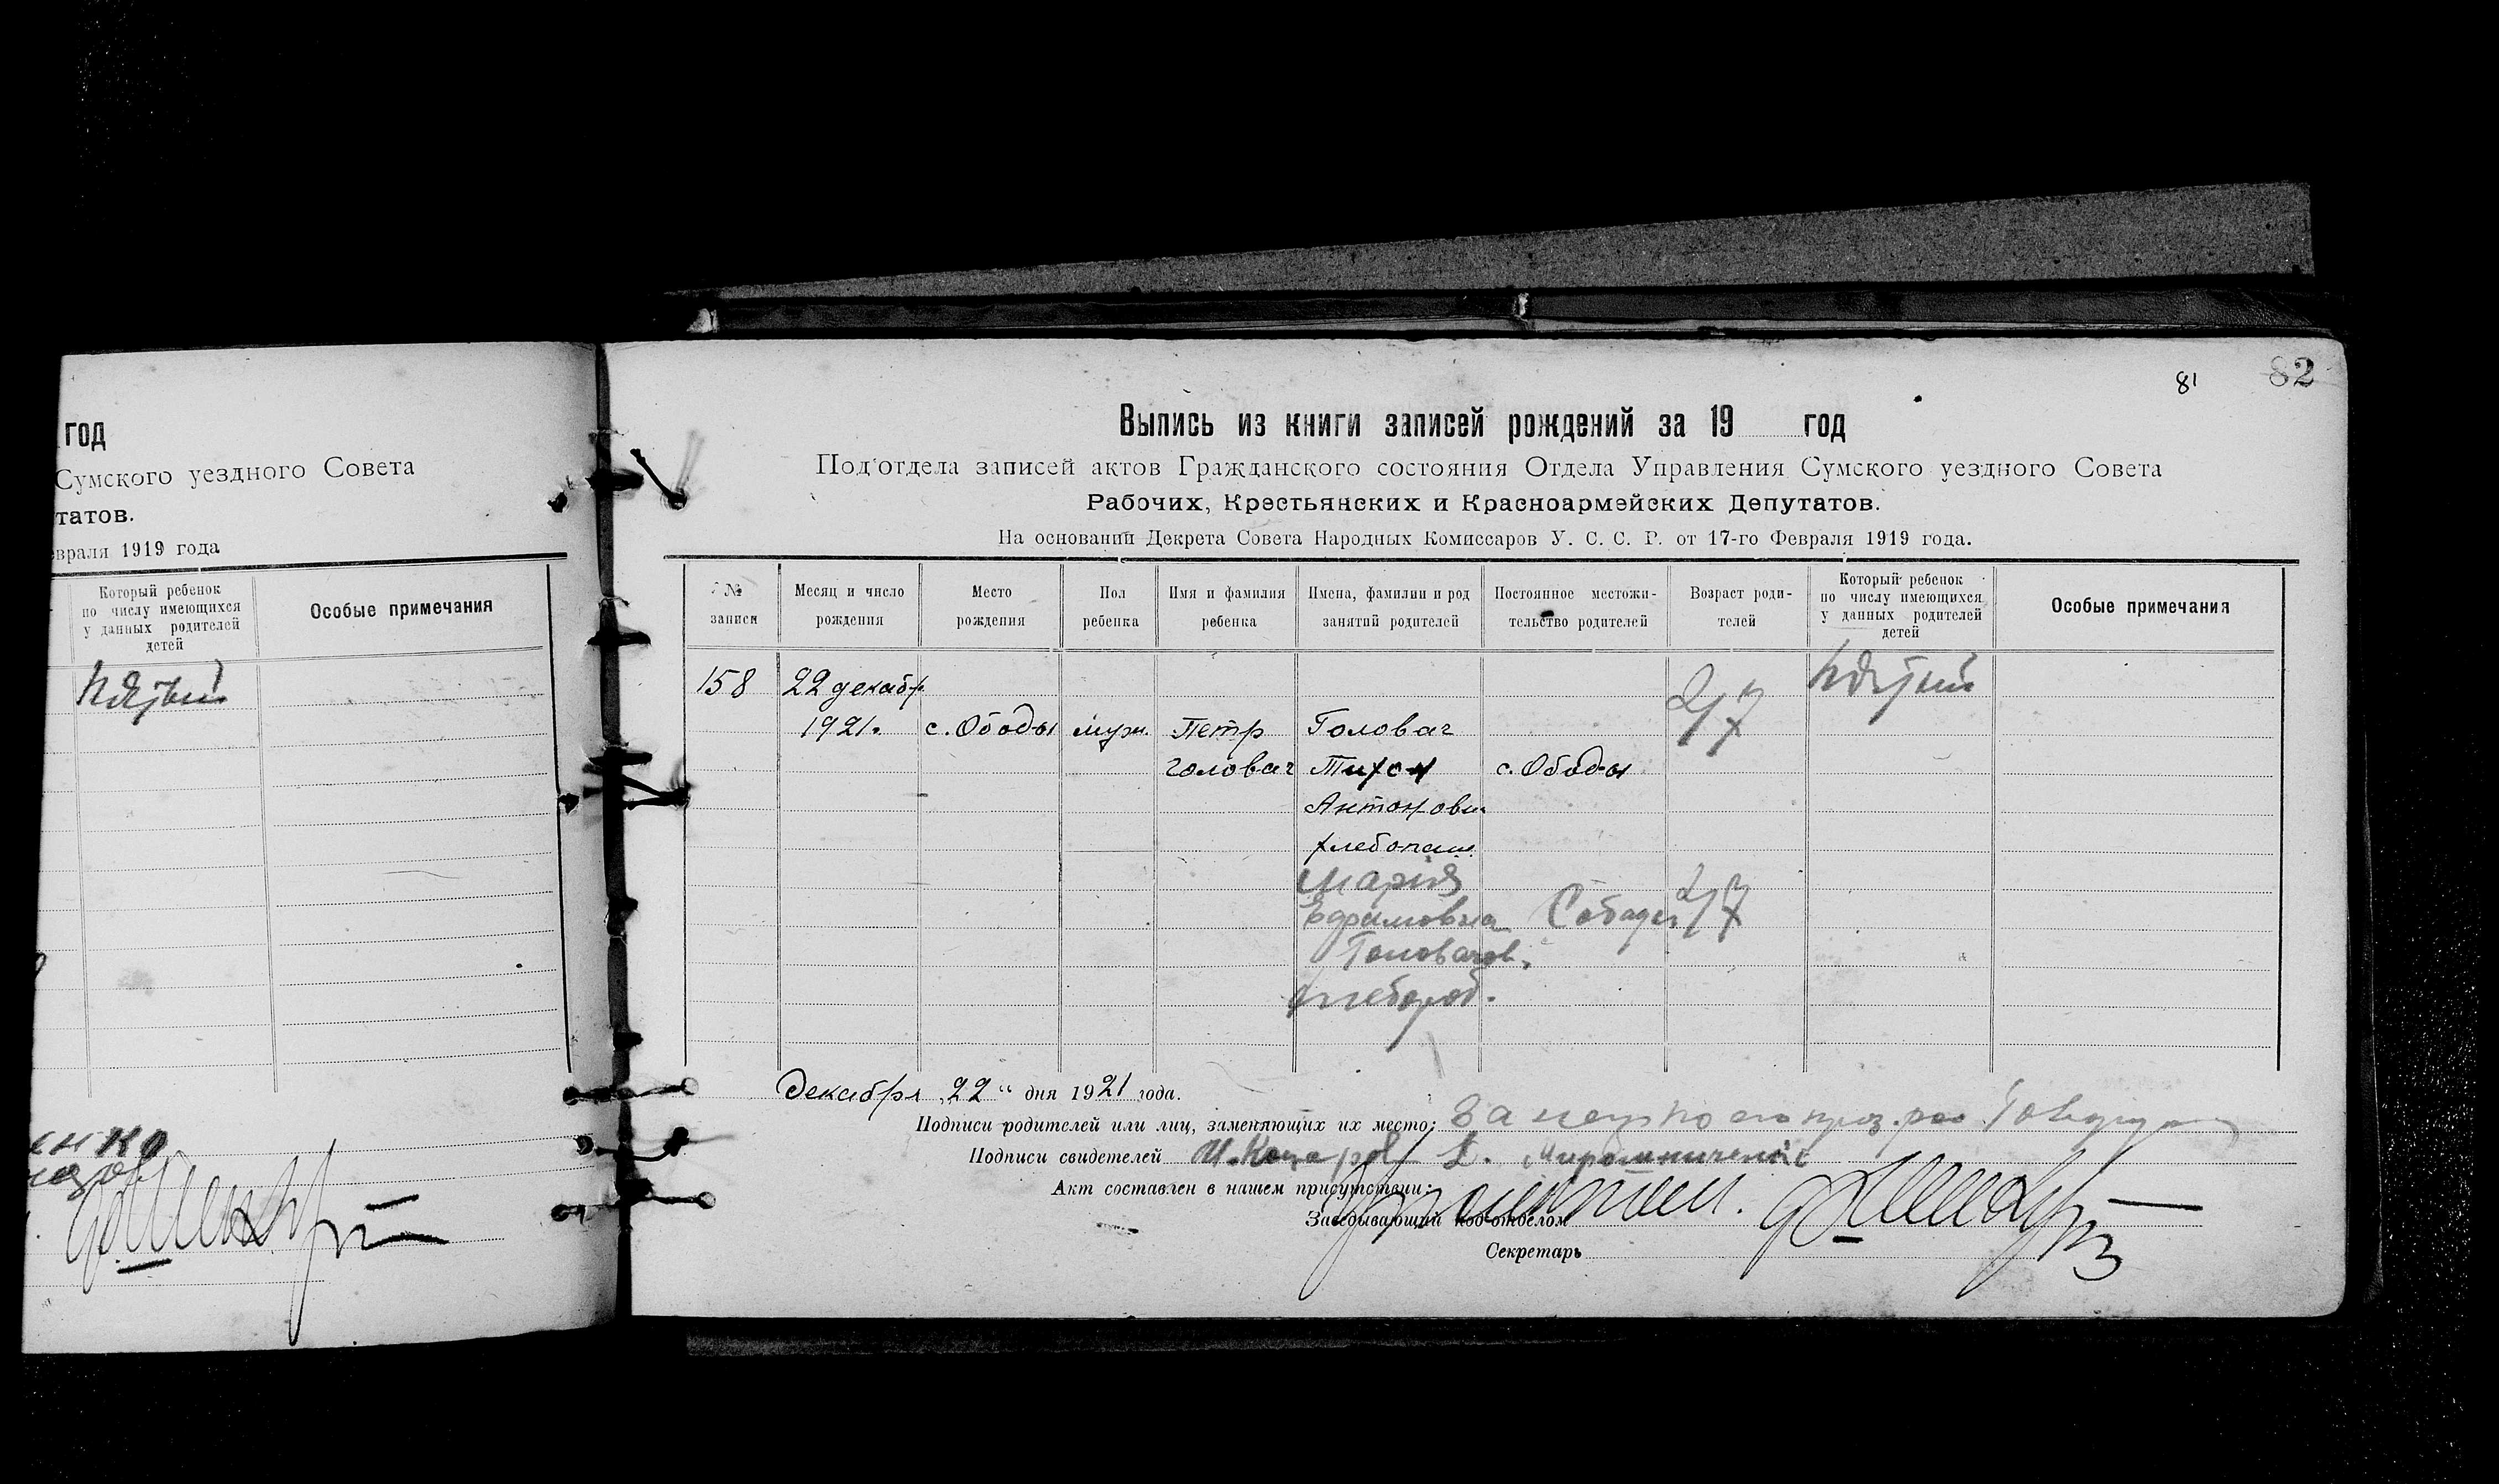 год
Сумского уездного Совета
татов.
евраля 1919 года
Который ребенок
по числу имеющихся
у данных родителей
детей
Особые примечания
пятый
енко
81
82
Выпись из книги записей рождений за 19 год
Под'отдела записей актов Гражданского состояния Отдела Управления Сумского уездного Совета
Рабочих, Крестьянских и Красноармейских Депутатов.
На основании Декрета Совета Народных Комиссаров У. С. С. Р. от 17-го Февраля 1919 года.
№
записи
Месяц и число
рождения
Место
рождения
Пол
ребенка
Имя и фамилия
ребенка
Имена, фамилии и род
занятий родителей
Постоянное местожи-
тельство родителей
Возраст роди-
телей
Который ребенок
по числу имеющихся
у данных родителей
детей
Особые примечания
158
22 декабр.
1921.
с. Ободы
муж.
Петр
Головач
Головач
Тихон
Антонови
хлебопаш.
с. Ободы
27
пятый
Мария
Ефимовна
Головачов.
хлебороб.
27
Декабря „22“ дня 1921 года.
Подписи родителей или лиц, заменяющих их место:
За
Подписи свидетелей
Мирошниченко
Акт составлен в нашем присутствии:
Заведывающий под'отделом
Секретарь